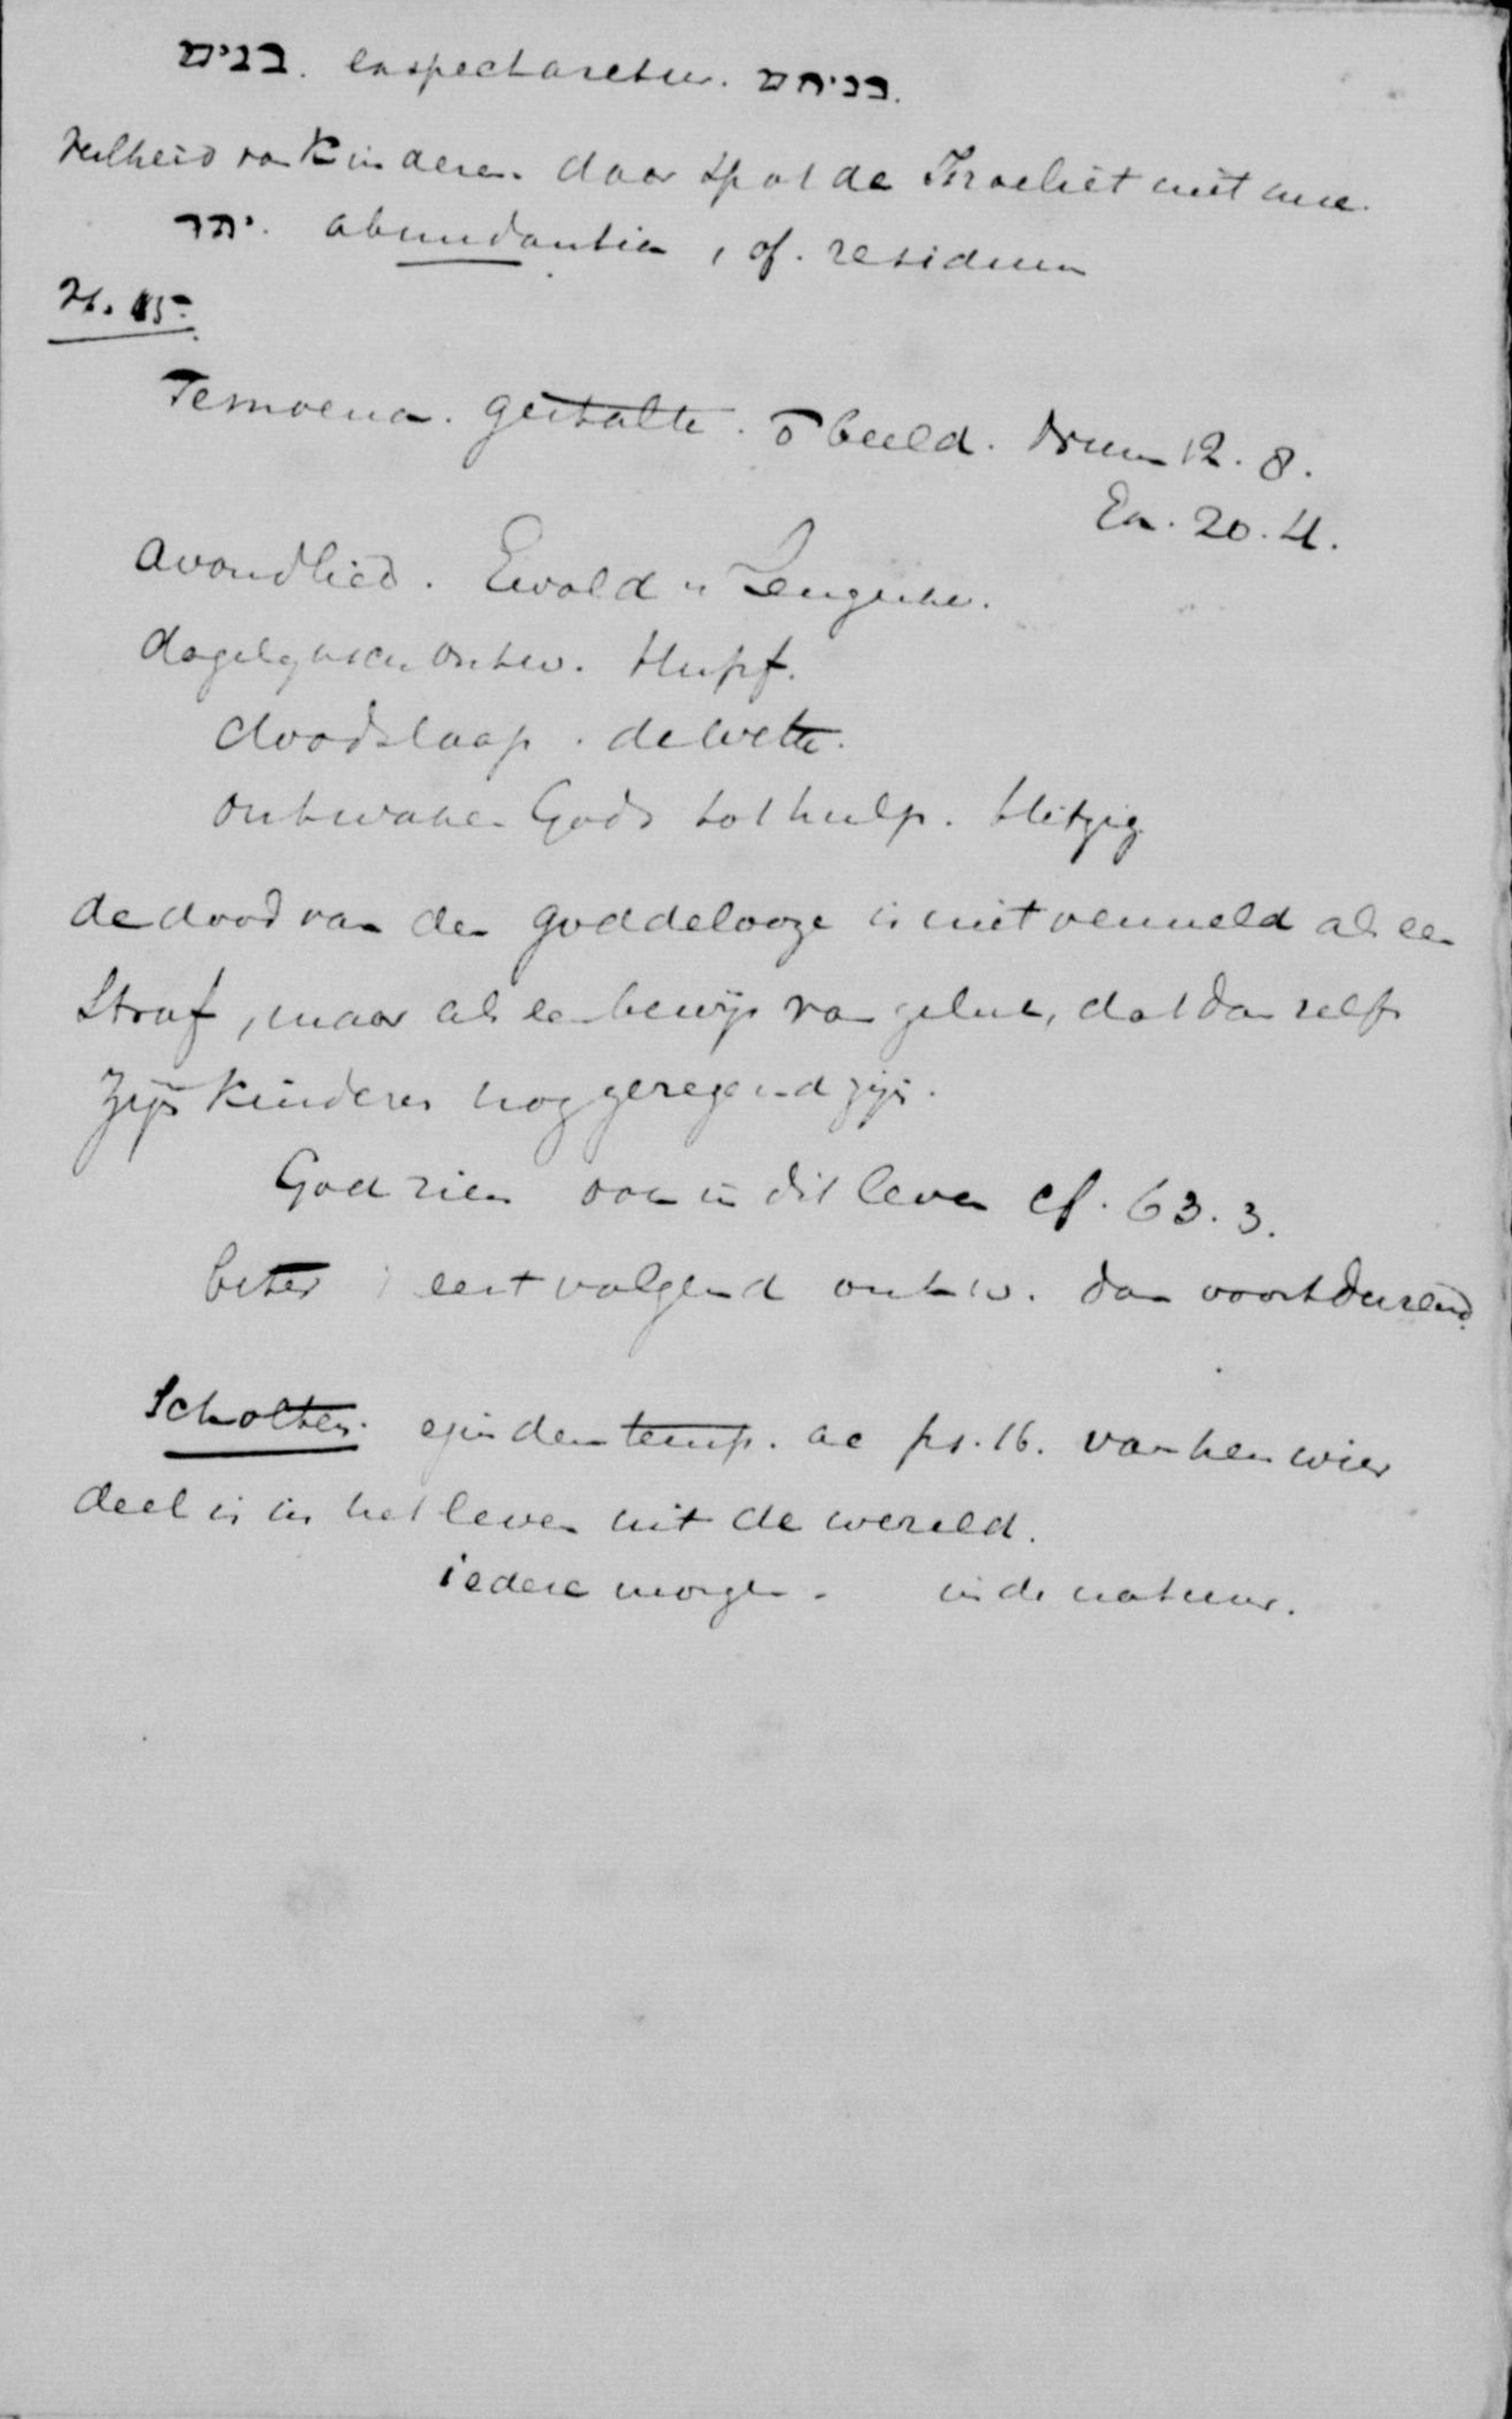 בנים. exspectaretur. בניהם.
veelheid van Kinderen. daar spot de Israeliet niet mee.
יתר. abundantia, of. residuum
vs. 15
Temoena. gestalte. o beeld. Num 12. 8.
Ex. 20. 4.
avondlied. Ewald. Lengerke.
dagelijksch ontw. Hupf.
doodslaap. de Wette.
ontwaken Gods tot hulp. Hitzig
de dood van den goddelooze is niet vermeld als een
straf, maar als een bewijs van geluk, dat dan zelfs
zijn Kinderen nog gezegend zijn.
God zien ook in dit leven cf. 63. 3.
beter eerstvolgend ontw. dan voortdurend
Scholten. ejusdem temp. ac ps. 16. van hen wier
deel is in het leven uit de wereld.
iedere morgen. in de natuur.